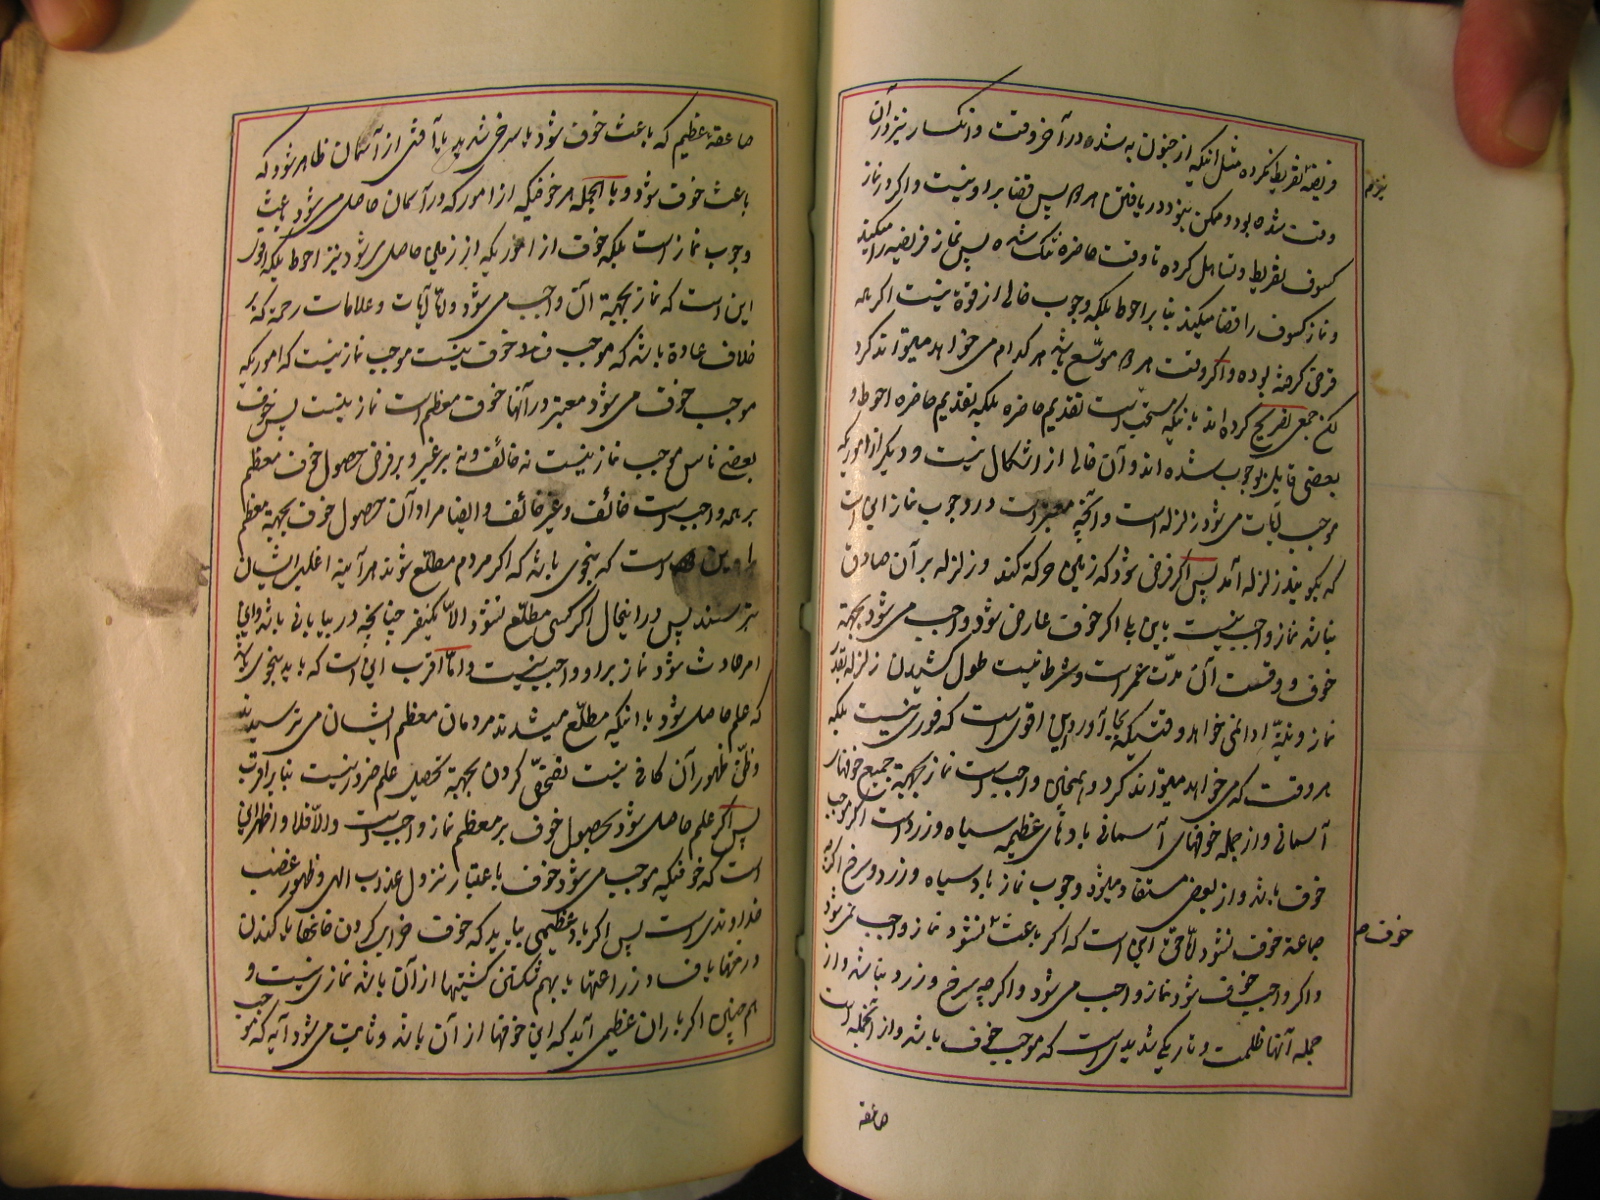 فریضه تفریط نکرده مثل اینکه از جنون به شده در آخر وقت و انکسار نیز در آن
وقت شده بود و ممکن نبود دریافتن هر دو پس قضا بر او نیست و اگر در نماز
کسوف تفریط و تساهل کرده تا وقت حاضره تنک شده پس نماز فریضه را میکند
و نماز کسوف را قضا میکند بنا بر احوط بلکه وجوب خالی از قوة نیست اگر همه
قرص گرفته بوده و اگر وقت هر دو موسّع باشد هر کدام می خواهد میتواند کرد
لکن جمعی تصریح کرده اند باینکه مستحب است تقدیم حاضره بلکه تقدیم حاضره احوط و
بعضی قایل بوجوب شده اند و آن خالی از اشکال نیست و دیگر از اموریکه
موجب آیات می شود زلزله است و آنچه معتبر است در وجوب نماز این است
که بگویند زلزله آمد پس اگر فرض شود که زمین حرکة کند و زلزله بر آن صادق
نباشد نماز واجب نیست با این یا اگر خوف عارض شود واجب می شود بجهة
خوف و وقت آن مدّت عمر است و شرط نیست طول کشیدن زلزله بقدر
نماز و نیّة ادا می خواهد وقتیکه بجا آورد پس اقوی است که فوری نیست بلکه
هر وقت که می خواهد میتواند کرد و همچنین واجب است نماز بجهة جمیع خوفهای
آسمانی و از جمله خوفهای آسمانی بادهای عظیمه سیاه و زرد است اگر موجب
خوف باشد و از بعض مستفاد میشود وجوب نماز باد سیاه و زرد و سرخ اگرچه
جماعة خوف نشود لاکن حق این است که اگر باعث نشود نماز واجب نمی شود
خوف صح
و اگر موجب خوف شود نماز واجب می شود و اگر چه سرخ و زرد نباشد و از
جمله آنها ظلمت و تاریکی شدید است که موجب خوف باشد و از آنجمله است
صاعقه
صاعقه عظیم که باعث خوف شود یا سرخی شدید یا آفتی از آسمان ظاهر شود که
باعث خوف شود و بالجمله هر خوفیکه از امور که در آسمان حاصل می شود باعث
وجوب نماز است بلکه خوف از اموریکه از زمین حاصل می شود نیز احوط بلکه اقوی
این است که نماز بجهة آن واجب می شود و امّا آیات و علامات رحمة که بر
خلاف عادة باشد که موجب خوف نیست موجب نماز نیست که اموریکه
موجب خوف می شود معتبر در آنها خوف معظم است نماز نیست پس خوف
بعضی ناس موجب نماز نیست نه خائف و نه بر غیر و بر فرض حصول خوف معظم
بر همه واجب است خائف و غیر خائف و ایضا مراد آن حصول خوف بجهة معظم
است که بنحوی باشد که اگر مردم مطلع شوند هر آینه اغلب ایشان
بترسند پس در اینحال اگر کسی مطلع نشود الا یکنفر چنانچه در بیابانی باشد و این
امر حادث شود نماز بر او واجب نیست و امّا اقرب این است که باید بنحوی باشد
که علم حاصل شود باینکه مطلّع میشدند مردمان معظم ایشان می ترسیدند
و ظنّ ظهور آن کافی نیست تفحّص کردن بجهة تحصیل علم ضرور نیست بنا بر اقرب
پس اگر علم حاصل شود بحصول خوف بر معظم نماز واجب است و الاّ فلا و اظهر این
است که خوفیکه موجب می شود خوف باعتبار نزول عذاب الهی و ظهور غضب
خداوندی است پس اگر باد عظیمی بیاید که خوف خراب کردن خانها یا کندن
درختها باشد و زراعتها یا بهم شکستن کشتیها از آن باشد نمازی نیست و
هم چنین اگر باران عظیمی آید که این خوفها از آن باشد و ثابت می شود آیه که موجب